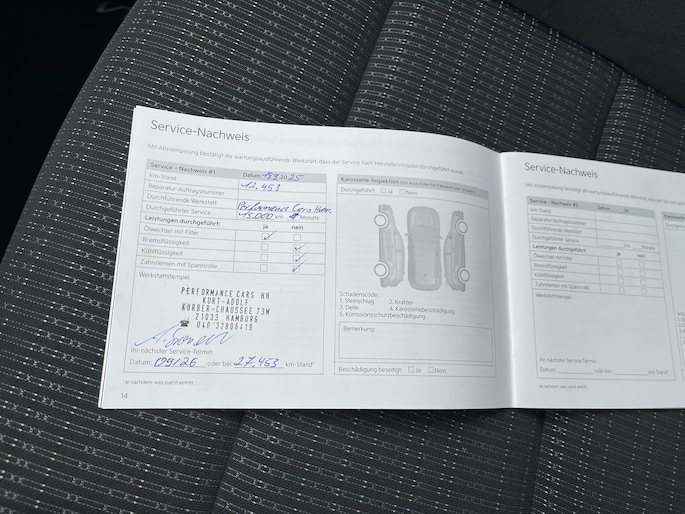 Service-Nachweis
Mit Abstempelung bestätigt die wartungsausführende Werkstatt, dass der Service nach Herstellervorgabe durchgeführt wurde.
Service - Nachweis #1 Datum: 18.9.2025
km-Stand 12.453
Reparatur-Auftragsnummer
Durchführende Werkstatt Performance Cars
Durchgeführter Service 15.000 km Monate
Leistungen durchgeführt: ja nein
Ölwechsel mit Filter
Bremsflüssigkeit
Kühlflüssigkeit
Zahnriemen mit Spannrolle
Werkstattstempel
PERFORMANCE CARS HH
KURT-ADOLF
KÖRBER-CHAUSSEE 73W
21033 HAMBURG
☎ 040 32806419
Ihr nächster Service-Termin
Datum: 09/26 oder bei: 27.453 km-Stand¹
¹ Je nachdem, was zuerst eintritt
14
Karosserie-Inspektion
Durchgeführt: Ja Nein
Schadenscode:
1. Steinschlag 2. Kratzer
3. Delle 4. Karosseriebeschädigung
5. Korrosionsschutzbeschädigung
Bemerkung:
Beschädigung beseitigt Ja Nein
Service-Nachweis
Mit Abstempelung bestätigt die wartungsausführende Werkstatt, dass der Service nach
Service - Nachweis #2 Datum: 20
km-Stand
Reparatur-Auftragsnummer
Durchführende Werkstatt
Durchgeführter Service km Monate
Leistungen durchgeführt: ja nein
Ölwechsel mit Filter
Bremsflüssigkeit
Kühlflüssigkeit
Zahnriemen mit Spannrolle
Werkstattstempel
Ihr nächster Service-Termin
Datum: oder bei: km-Stand¹
¹ Je nachdem, was zuerst eintritt